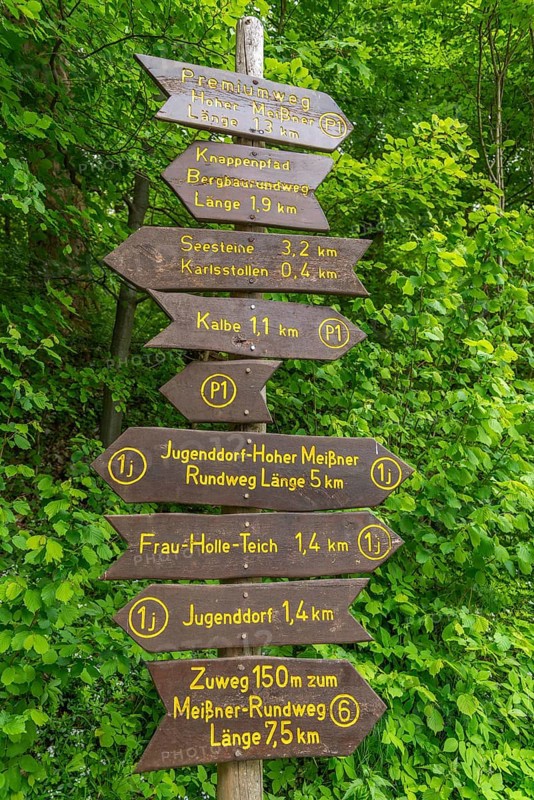 Premiumweg
Hoher Meißner
Länge 13 km P1
Knappenpfad
Bergbaurundweg
Länge 1,9 km
Seesteine 3,2 km
Karlsstollen 0,4 km
Kalbe 1,1 km P1
P1
1j Jugenddorf-Hoher Meißner 1j
Rundweg Länge 5 km
Frau-Holle-Teich 1,4 km 1j
1j Jugenddorf 1,4 km
Zuweg 150 m zum
Meißner-Rundweg 6
Länge 7,5 km